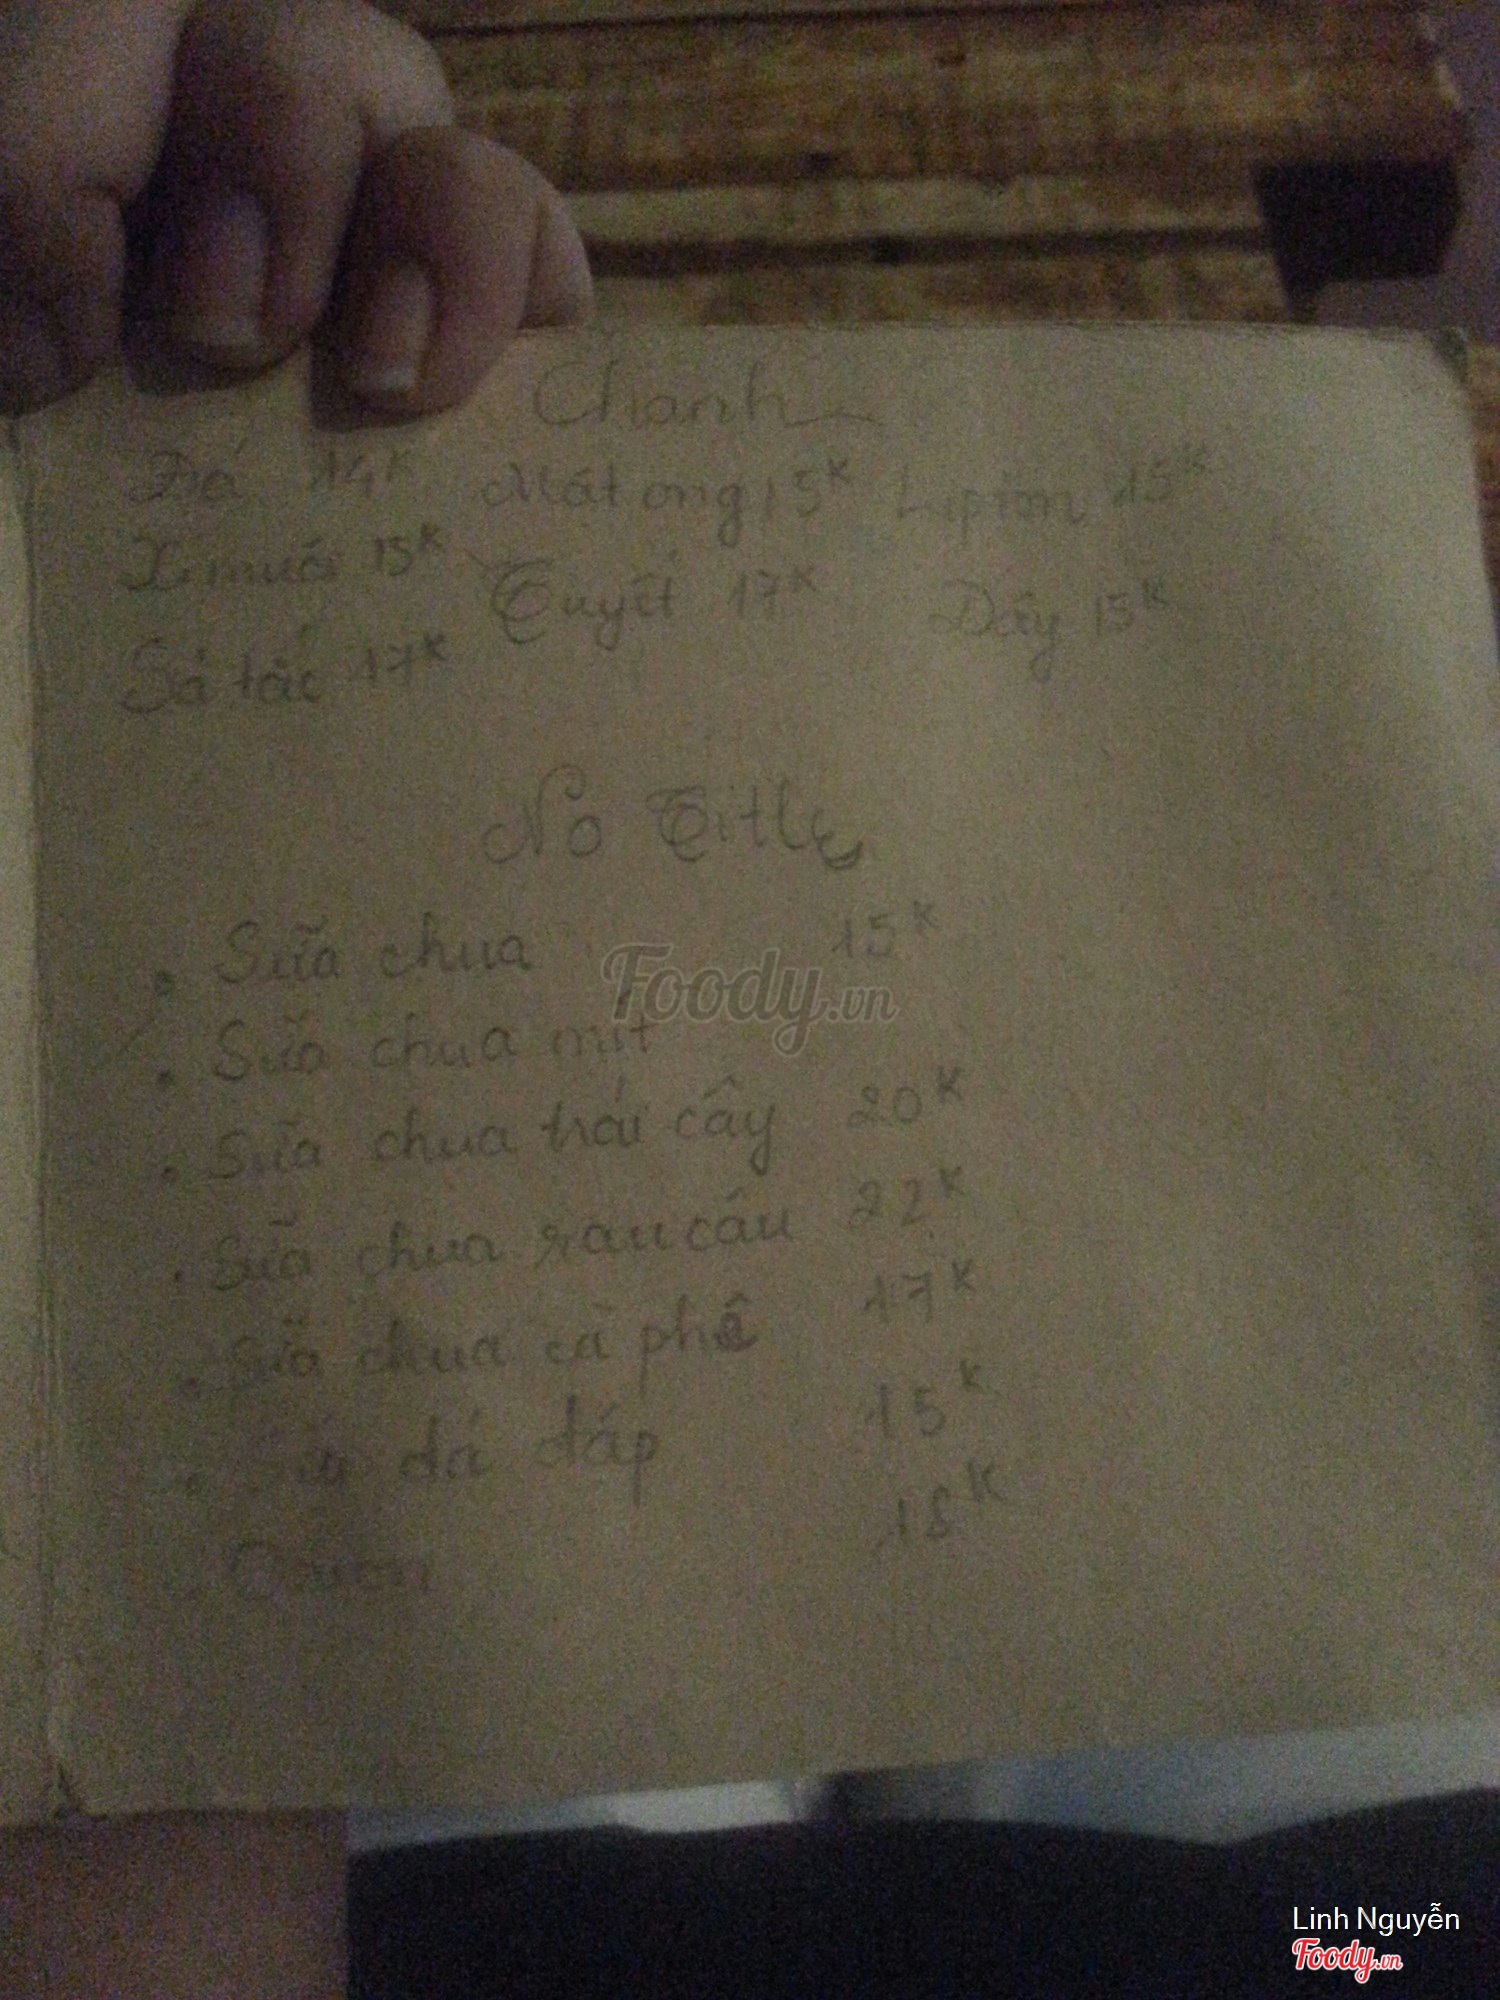 Chanh
Đá 14K Mật ong 15K Lipton 15K
Xí muội 15K Tuyết 17K Dây 15K
Sả tắc 17K
No Title
Sữa chua 15K
Sữa chua mít
Sữa chua trái cây 20K
Sữa chua rau câu 22K
Sữa chua cà phê 17K
đá đáp 15K
18K
Foody.vn
Linh Nguyễn
Foody.vn